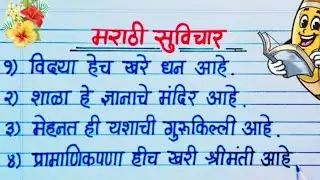 मराठी सुविचार
१) विदया हेच खरे धन आहे.
२) शाळा हे ज्ञानाचे मंदिर आहे.
३) मेहनत ही यशाची गुरुकिल्ली आहे.
४) प्रामाणिकपणा हीच खरी श्रीमंती आहे.